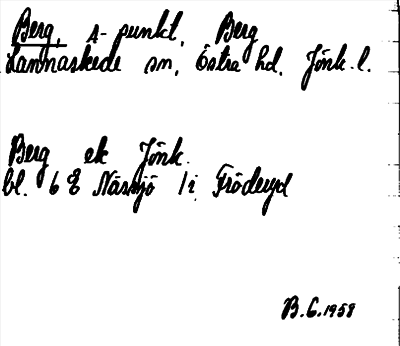 Berg, A-punkt, Berg
Lannaskede sn, Östra hd, Jönk. l.
Berg ek Jönk.
bl. 6 E Nässjö 1 i Fröderyd
B.G. 1958